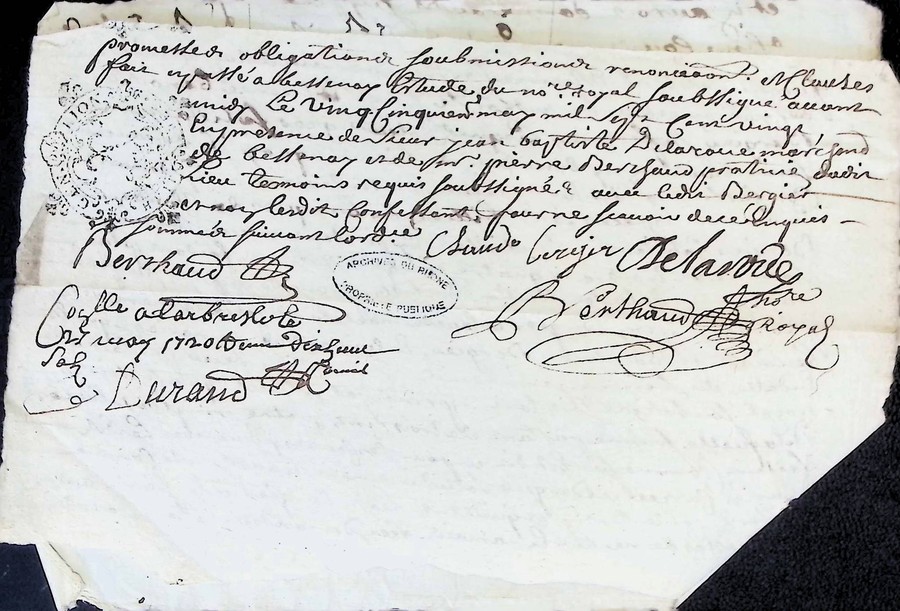 promesses obligations soubmissions renonciaons. et clauses
fait et passé a bessenay Estude du no.re royal soubsigné avant
midy Le vingt Cinquiem may mil sept Cent vingt
En presence de sieur jean baptiste Delaroue marchand
de bessenay et de m.r pierre Berthaud praticien dudit
lieu temoins requis soubsignés avec ledit Bergier
et non lesdit Confessant pour ne scavoir de ce enquis
sommés suivant lordce
Berthaud
Claude bergier Delaroue
ARCHIVES DU RHÔNE
PROPRIÉTÉ PUBLIQUE
Berthaud Nore Royal
Coñllé a larbresle le
27 may 1720
Durand